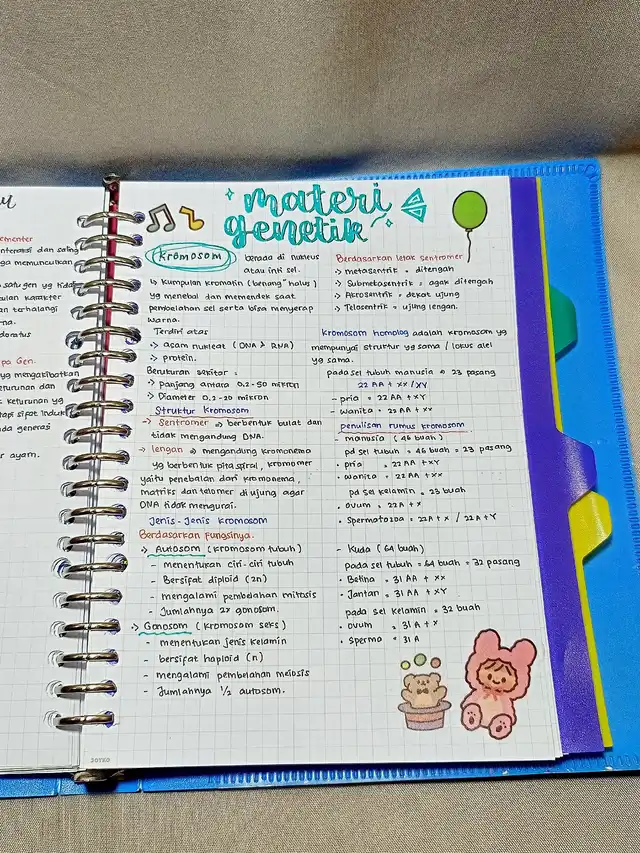 ementer
nteraksi dan saling
ga memunculkan
satu gen yg tidak
ulan karakter
an terhalangi
na.
doratus
pa Gen.
yg mengakibatkan
eturunan dan
k keturunan yg
tapi sifat induk
da generasi
r ayam.
materi
genetik
Kromosom
berada di nukleus
atau inti sel.
↳ Kumpulan kromatin (benang" halus)
yg menebal dan memendek saat
pembelahan sel serta bisa menyerap
warna.
Terdiri atas
-> asam nukleat (DNA & RNA)
-> protein.
Berukuran sekitar :
-> panjang antara 0,2-50 mikron
-> Diameter 0,2-20 mikron
Struktur Kromosom
-> Sentromer -> berbentuk bulat dan
tidak mengandung DNA.
-> lengan -> mengandung kromonema
yg berbentuk pita spiral, kromomer
yaitu penebalan dari kromonema,
matriks dan telomer di ujung agar
DNA tidak mengurai.
Jenis-Jenis kromosom
Berdasarkan fungsinya.
-> Autosom (kromosom tubuh)
- menentukan ciri-ciri tubuh
- Bersifat diploid (2n)
- mengalami pembelahan mitosis
- Jumlahnya 2x gonosom.
-> Gonosom (kromosom seks)
- menentukan jenis kelamin
- bersifat haploid (n)
- mengalami pembelahan meiosis
- Jumlahnya 1/2 autosom.
Berdasarkan letak sentromer
-> metasentrik = ditengah
-> Submetasentrik = agak ditengah
-> Akrosentrik = dekat ujung
-> Telosentrik = ujung lengan.
Kromosom homolog adalah kromosom yg
mempunyai struktur yg sama / lokus alel
yg sama.
pada sel tubuh manusia = 23 pasang
22 AA + XX / XY
- pria = 22 AA + XY
- wanita = 22 AA + XX
penulisan rumus kromosom
- manusia (46 buah)
pd sel tubuh = 46 buah = 23 pasang
• pria = 22 AA + XY
• wanita = 22 AA + XX
pd sel kelamin = 23 buah
• ovum = 22 A + X
• Spermatozoa = 22A + X / 22 A + Y
- Kuda (64 buah)
pada sel tubuh = 64 buah = 32 pasang
• Betina = 31 AA + XX
• Jantan = 31 AA + XY
pada sel kelamin = 32 buah
• ovum = 31 A + X
• Sperma = 31 A
JOYKO